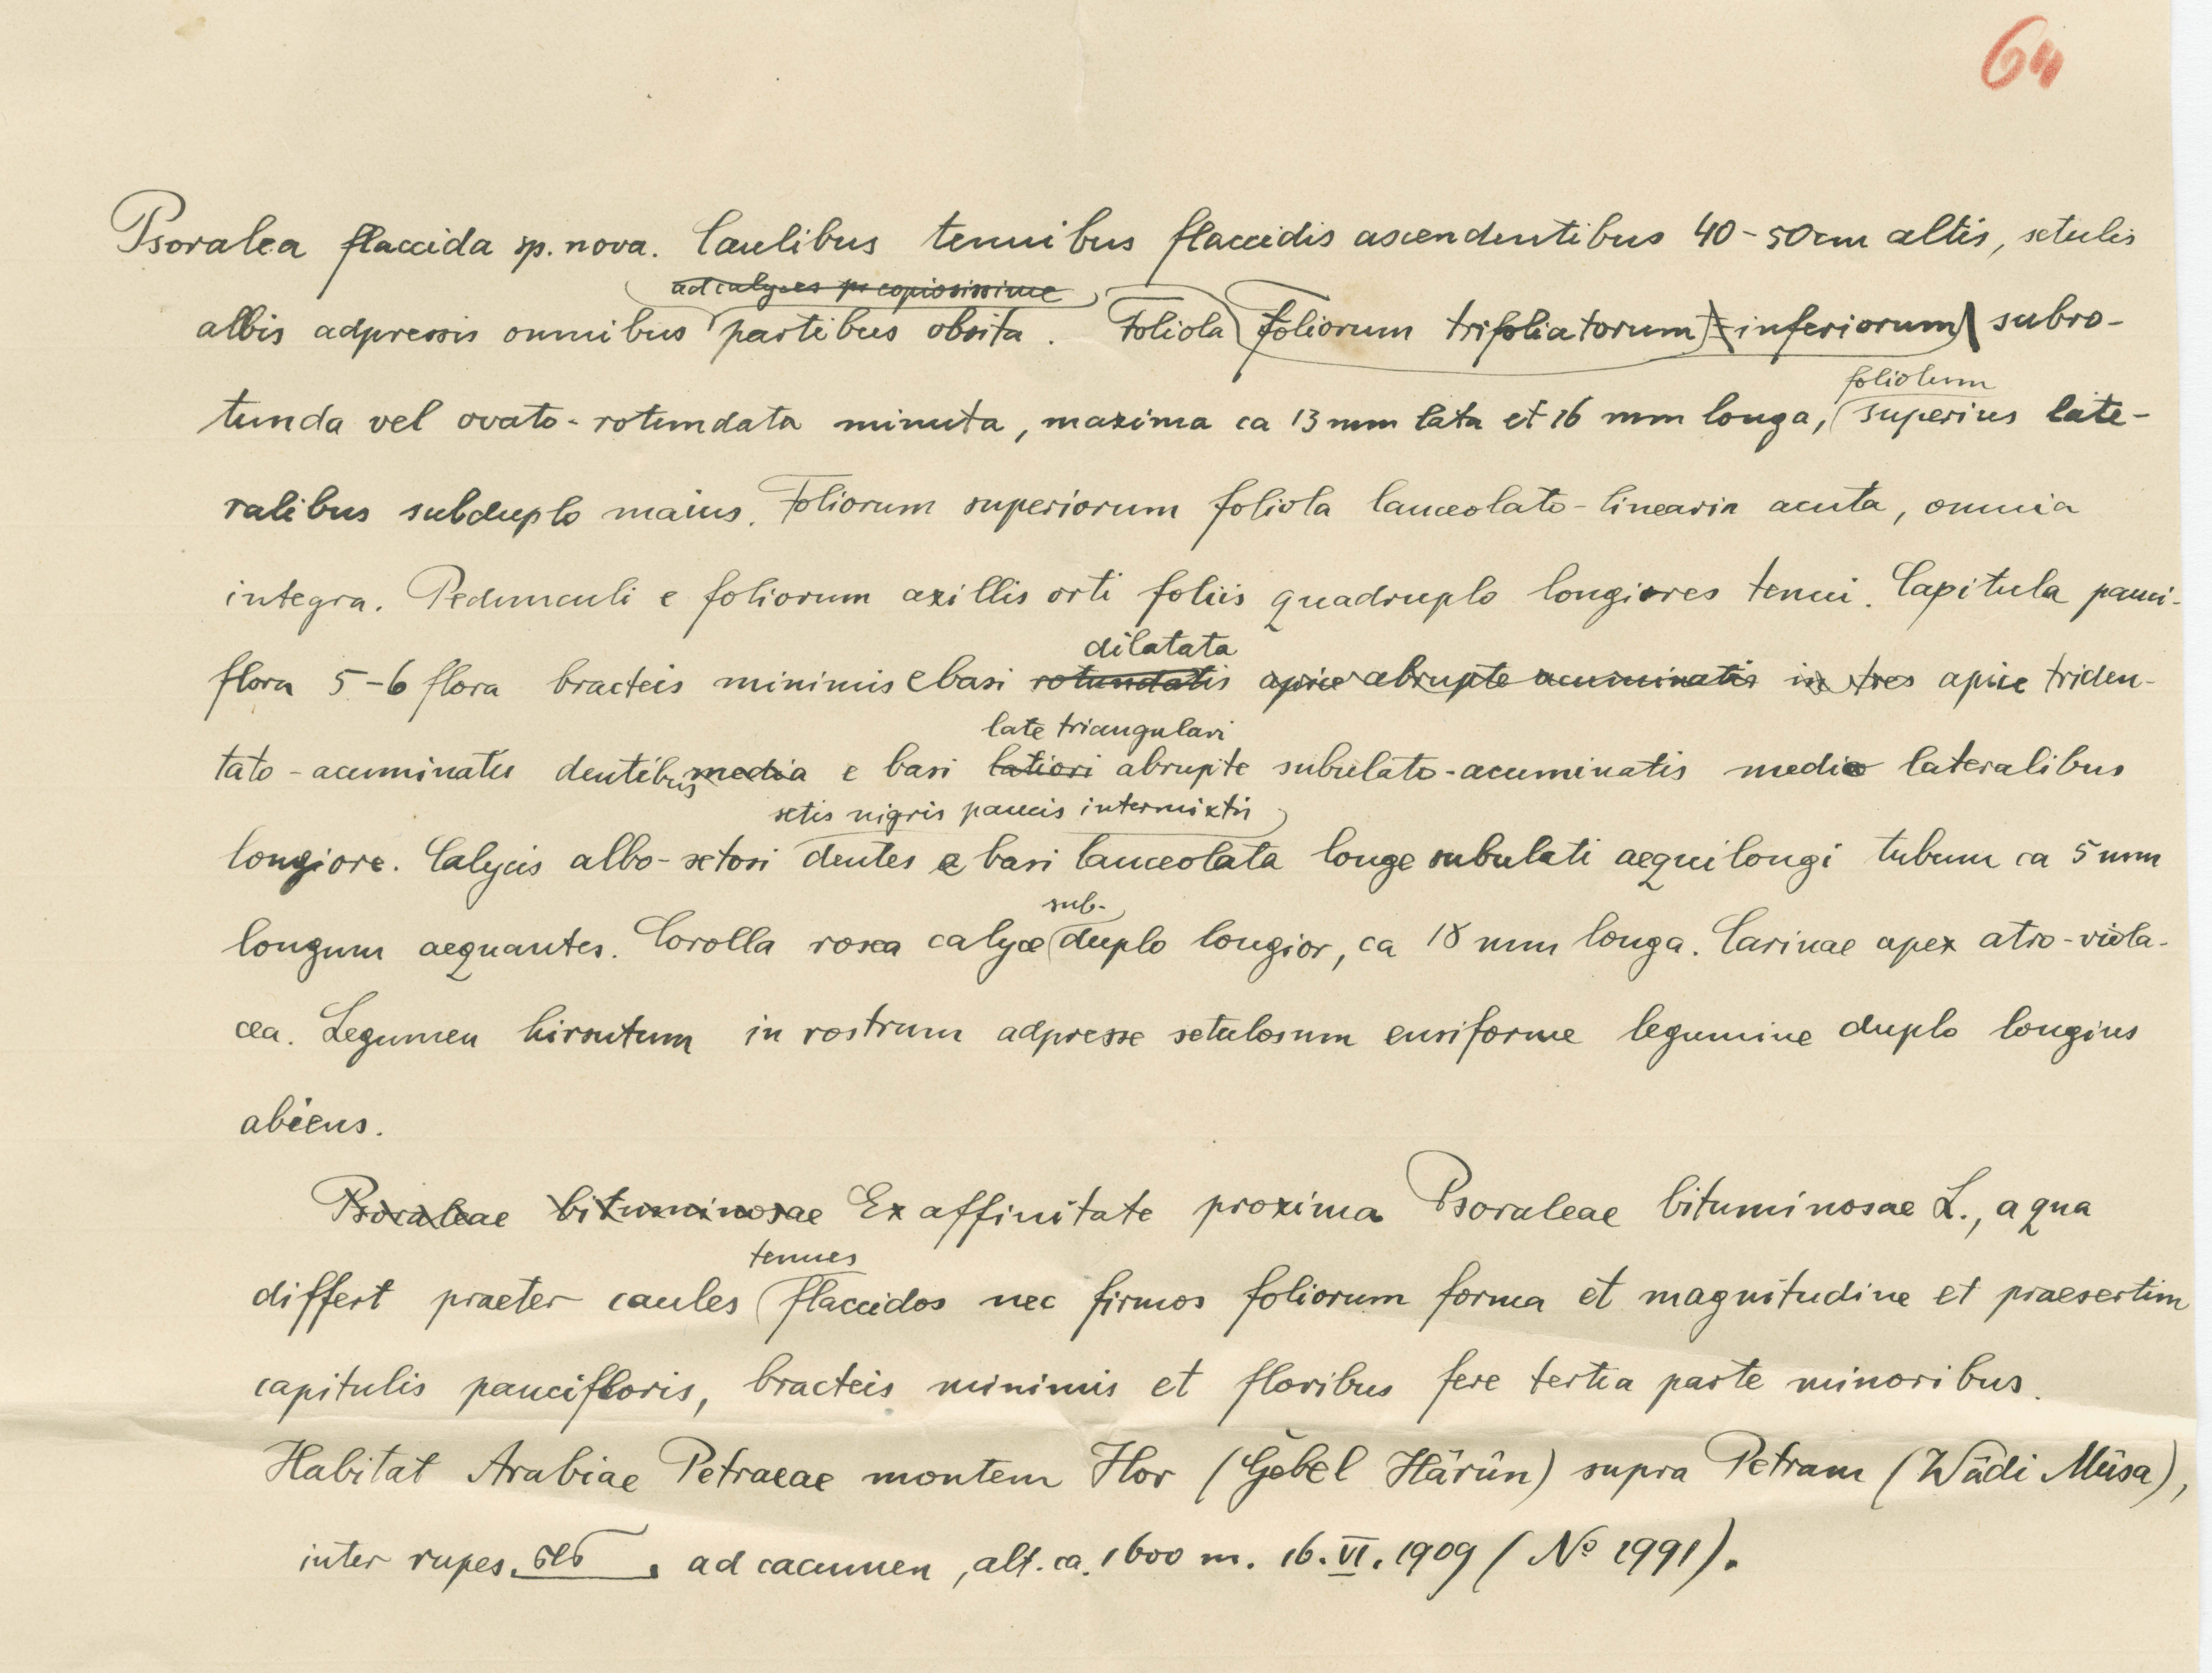 64
Psoralea flaccida sp. nova. Caulibus tenuibus flaccidis ascendentibus 40-50cm altis, setulis
ad calyces copiosissime
albis adpressis omnibus partibus obsita. Foliola foliorum trifoliatorum inferiorum subro-
foliolum
tunda vel ovato-rotundata minuta, maxima ca 13 mm lata et 16 mm longa, superius late-
ralibus subduplo maius. Foliorum superiorum foliola lanceolato-linearia acuta, omnia
integra. Pedunculi e foliorum axillis orti foliis quadruplo longiores tenui. Capitula pauci-
dilatata
flora 5-6 flora bracteis minimis e basi rotundatis apice abrupte acuminatis in tres apice triden-
late triangulari
tato-acuminatis dentibus media e basi latiori abrupte subulato-acuminatis medio lateralibus
setis nigris paucis intermixtis
longiore. Calycis albo-setosi dentes e basi lanceolata longe subulati aequilongi tubum ca 5 mm
sub-
longum aequantes. Corolla rosea calyce duplo longior, ca 18 mm longa. Carinae apex atro-viola-
cea. Legumen hirsutum in rostrum adpresse setulosum ensiforme legumine duplo longius
abiens.
Psoraleae bituminosae Ex affinitate proxima Psoraleae bituminosae L., a qua
tenues
differt praeter caules flaccidos nec firmos foliorum forma et magnitudine et praesertim
capitulis paucifloris, bracteis minimis et floribus fere tertia parte minoribus.
Habitat Arabiae Petraeae montem Hor (Ǧebel Hârûn) supra Petram (Wâdi Mûsa),
inter rupes ad cacumen, alt. ca. 1600 m. 16. VI. 1909 (No 1991).